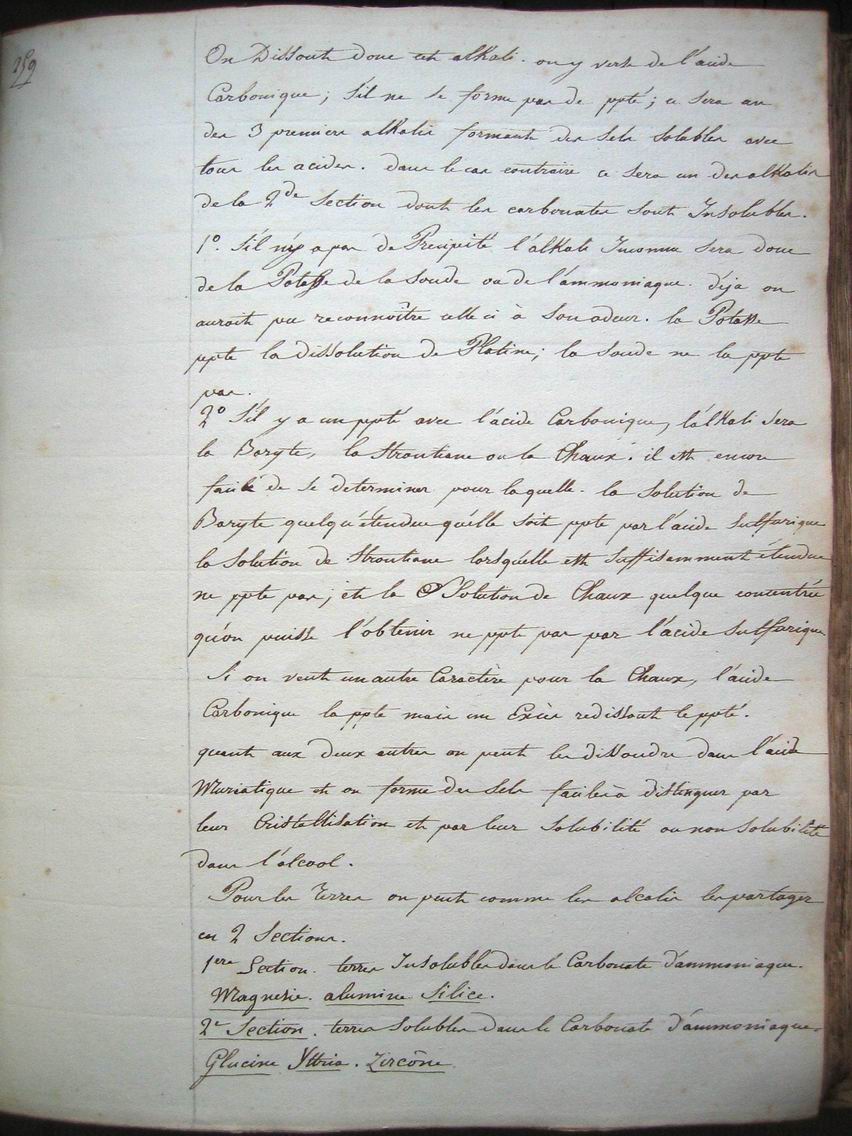 259
On Dissout donc cet alkali. on y verse de l'acide
Carbonique; s'il ne se forme pas de ppté; ce sera un
des 3 premiers alkalis formant des sels solubles avec
tous les acides. dans le cas contraire ce sera un des alkalis
de la 2de Section dont les carbonates sont Insolubles.
1o. s'il n'y a pas de Precipité l'alkali Inconnu sera donc
de la Potasse de la soude ou de l'ammoniaque. déja on
auroit pu reconnoître celle ci à son odeur. la Potasse
ppte la dissolution de Platine; la soude ne la ppte
pas.
2o S'il y a un ppté avec l'acide Carbonique, l'alkali sera
la Baryte, la Strontiane ou la Chaux. il est encore
facile de se determiner pour laquelle. la solution de
Baryte quelqu'étendue qu'elle soit ppte par l'acide Sulfurique
la solution de Strontiane lorsqu'elle est suffisamment étendue
ne ppte pas; et la Solution de Chaux quelque concentrée
qu'on puisse l'obtenir ne ppte pas par l'acide Sulfurique
Si on veut un autre Caractère pour la Chaux, l'acide
Carbonique la ppte mais un Excès redissout le ppté.
quant aux deux autres on peut les dissoudre dans l'acide
Muriatique et on forme des sels faciles à distinguer par
leur Cristallisation et par leur solubilité ou non solubilité
dans l'alcool.
Pour les Terres on peut comme les alcalis les partager
en 2 Sections.
1ere Section. terres Insolubles dans le Carbonate d'ammoniaque.
Magnesie. alumine Silice.
2e Section. terres solubles dans le Carbonate d'ammoniaque.
Glucine Yttria. Zircône